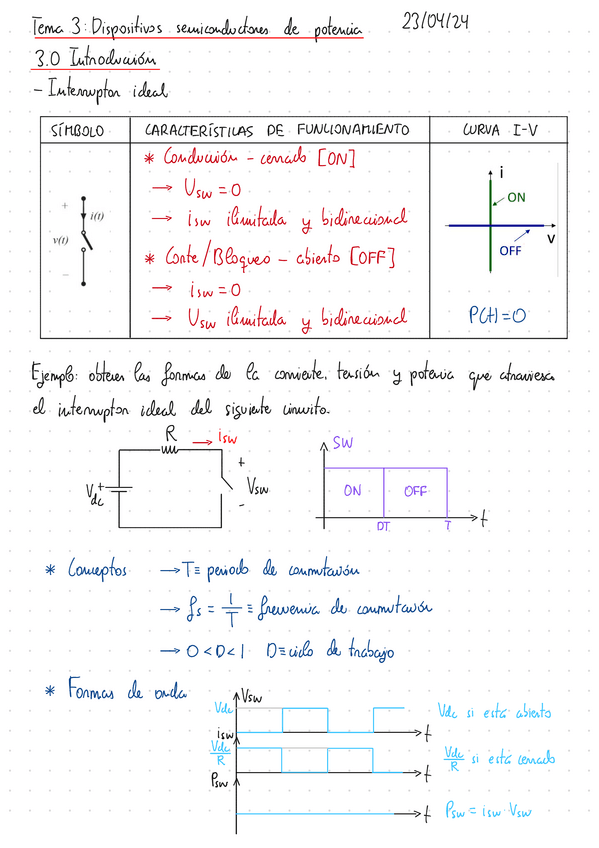 Tema 3: Dispositivos semiconductores de potencia 23/04/24
3.0 Introducción
- Interruptor ideal
SÍMBOLO CARACTERÍSTICAS DE FUNCIONAMIENTO CURVA I-V
* Conducción - cerrado [ON]
→ Usw = 0
→ isw ilimitada y bidireccional
* Corte/Bloqueo - abierto [OFF]
→ isw = 0
→ Usw ilimitada y bidireccional
+
i(t)
v(t)
−
i
ON
OFF
v
P(t)=0
Ejemplo: obtener las formas de la corriente, tensión y potencia que atraviesa
el interruptor ideal del siguiente circuito.
R → isw
Vdc +
+
Vsw
-
SW
ON OFF
DT T t
* Conceptos → T ≡ periodo de conmutación
→ fs = 1/T ≡ frecuencia de conmutación
→ 0 < D < 1 D ≡ ciclo de trabajo
* Formas de onda
Vsw
Vdc
t
Vdc si está abierto
isw
Vdc/R
t
Vdc/R si está cerrado
Psw
t
Psw = isw · Vsw